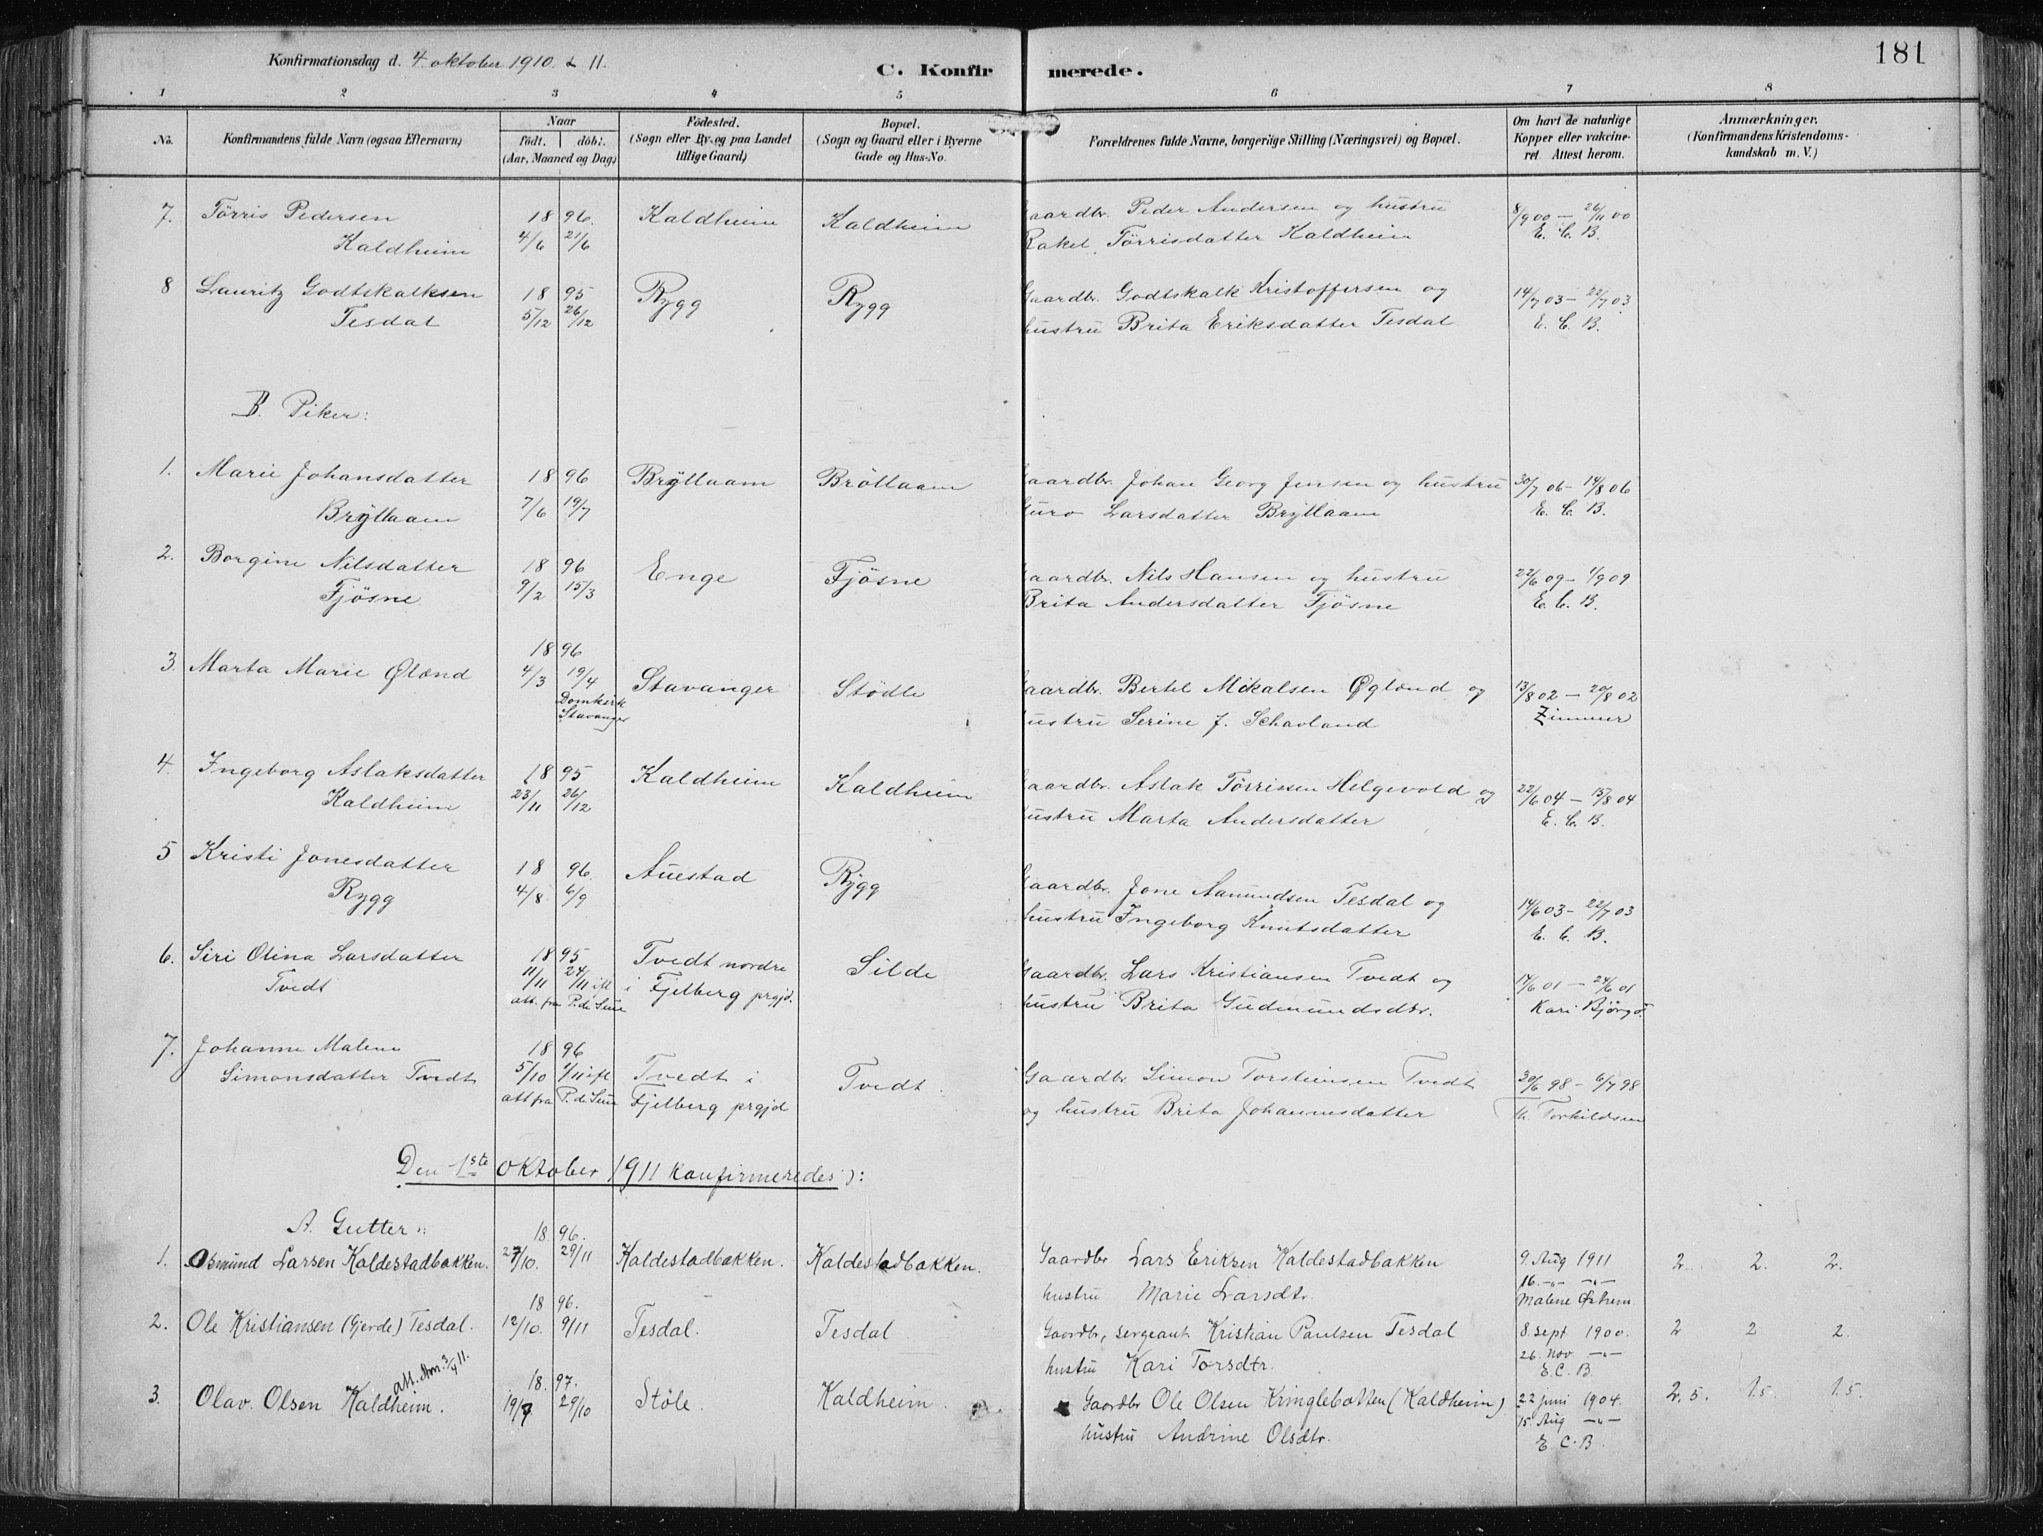 181
Konfirmationsdag d. 4. oktober 1910. & 11.
C. Konfir merede.
1 2 3 4 5 6 7 8
No.
Konfirmandens fulde Navn (ogsaa Efternavn)
Naar
født. døbt.
(Aar, Maaned og Dag)
Fødested.
(Sogn eller By, og paa Landet
tillige Gaard)
Bopæl.
(Sogn og Gaard eller i Byerne
Gade og Hus-No.
Forældrenes fulde Navne, borgerlige Stilling (Næringsvei) og Bopæl.
Om havt de naturlige
Kopper eller vakcine-
ret. Attest herom.
Anmærkninger.
(Konfirmandens Kristendoms-
kundskab m. V.)
7. Tørris Pedersen 18 96. Kaldheim Kaldheim Gaardbr. Peder Andersen og hustru 8/9 00 — 26/11 00
Kaldheim 4/6 21/6 Rakel Tørrisdatter Kaldheim E. C. B.
8 Lauritz Godtskalksen 18 95 Rygg Rygg Gaardbr. Godtskalk Kristoffersen og 14/7 03 — 22/7 03
Tesdal 5/12 26/12 hustru Brita Eriksdatter Tesdal E. C. B.
B. Piker:
1. Marie Johansdatter 18 96 Brÿllaam Bröllaam Gaardbr. Johan Georg Jensen og hustru 30/7 06 — 14/8 06
Brÿllaam 7/6 19/7 Guro Larsdatter Brÿllaam E. C. B.
2. Borgine Nilsdatter 18 96 Enge Fjösne Gaardbr. Nils Hansen og hustru 22/6 09 — 1/9 09
Fjösne 9/2 15/3 Brita Andersdatter Fjösne E. C. B.
3. Marta Marie Ølænd 18 96 Stavanger Stödle Gaardbr. Bertel Mikalsen Øglænd og 13/8 02 — 20/8 02
4/3 19/4 Domkirk Stavanger hustru Serine J. Schavland Zimmer
4. Ingeborg Aslaksdatter 18 95 Kaldheim Kaldheim Gaardbr. Aslak Tørrissen Helgevold og 22/6 04 — 15/8 04
Kaldheim 23/11 26/12 hustru Marta Andersdatter E. C. B.
5 Kristi Jonesdatter 18 96. Auestad Rygg Gaardbr. Jone Aamundsen Tesdal og 14/6 03 — 22/7 03
Rygg 4/8 6/9 hustru Ingeborg Knutsdatter E. C. B.
6. Siri Olina Larsdatter 18 95 Tvedt nordre Silde Gaardbr. Lars Kristiansen Tvedt og 17/6 01 — 24/6 01
Tvedt 11/11 24/11 ifl i Fjelberg prgjd. hustru Brita Gudmundsdtr. Kari Bjørgo.
att. fra P. de Seue
7. Johanne Malene 18 96 Tvedt i Tvedt. Gaardbr Simon Torsteinsen Tvedt 30/6 98 — 6/7 98
Simonsdatter Tvedt 5/10 1/11 ifl Fjelberg prgjd og hustru Brita Johannesdatter Th. Torkildsen
att fra P. de Seue
Den 1ste oktober 1911 konfirmeredes:
A. Gutter: 18 96.
1. Osmund Larsen Kaldestadbakken. 27/10. 29/11 Kaldestadbakken. Kaldestadbakken. Gaardbr Lars Eriksen Kaldestadbakken 9. Aug 1911 2. 2. 2.
hustru Marie Larsdtr. 16. -"- -"-
Malene Østrem.
18 96.
2. Ole Kristiansen (Gjerde) Tesdal. 12/10. 9/11 Tesdal. Tesdal. Gaardbr, sergeant Kristian Paulsen Tesdal 8. sept 1900. 2 2 2.
hustru Kari Torsdtr. 26. nov -"-
E. C. B.
18. 97.
3. Olav Olsen Kaldheim. 19/7 29/10 Støle. Kaldheim. Gaardbr Ole Olsen Kringlebotten (Kaldheim) 22 juni 1904. 2.5. 1.5. 1.5.
hustru Andrine Olsdtr. 15 Aug -"-
E. C. B.